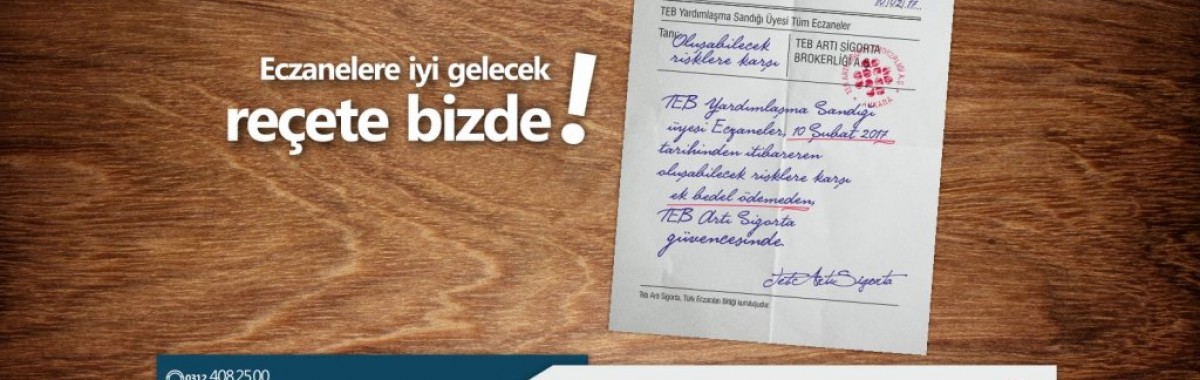 Eczanelere iyi gelecek
reçete bizde!
TEB Yardımlaşma Sandığı Üyesi Tüm Eczaneler
Tanı:
Oluşabilecek
risklere karşı
TEB ARTI SİGORTA
BROKERLİĞİ A.Ş.
ANKARA
TEB Yardımlaşma Sandığı
üyesi Eczaneler, 10 Şubat 2017
tarihinden itibareren
oluşabilecek risklere karşı
ek bedel ödemeden,
TEB Artı Sigorta
güvencesinde.
Teb Artı Sigorta
Teb Artı Sigorta, Türk Eczacıları Birliği kuruluşudur.
0312 408 25 00